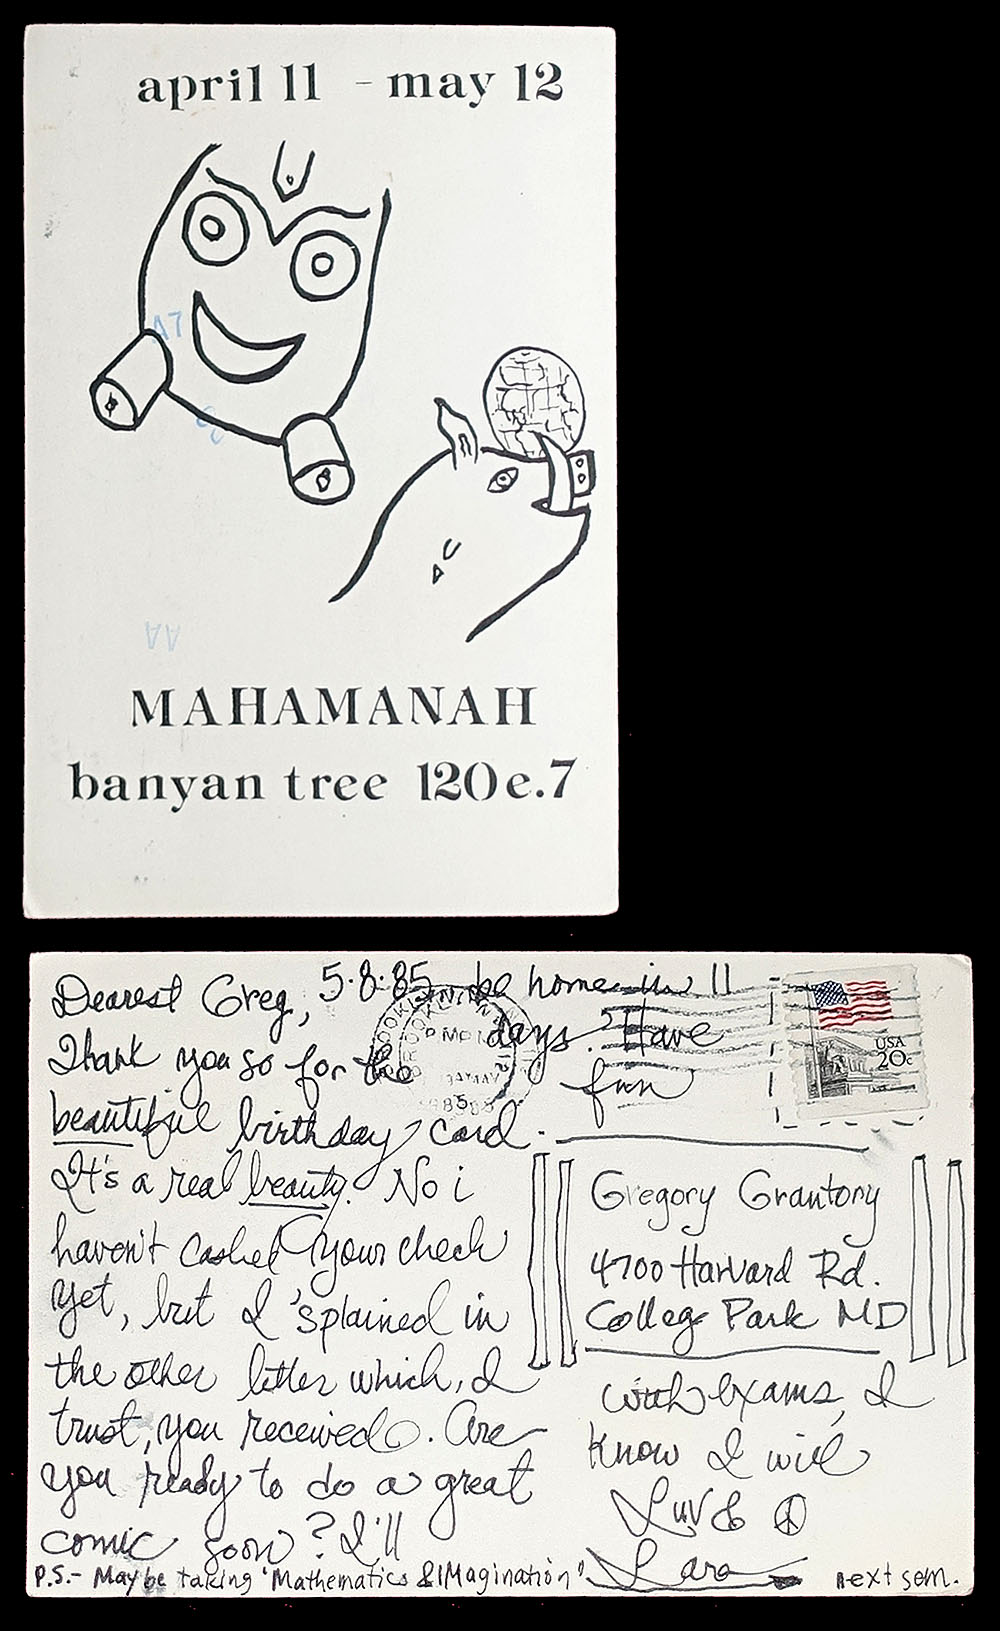 april 11 - may 12
A7
AA
MAHAMANAH
banyan tree 120 e.7
Dearest Greg,
5.8.85
Thank you so for the
beautiful birthday card.
It's a real beauty. No i
haven't cashed your check
yet, but I 'splained in
the other letter which, I
trust, you received. Are
you ready to do a great
comic soon? I'll
be home in 11
days. Have
fun
with exams, I
know I will
Luv & ☮
Lara
P.S.- May be taking "Mathematics & IMagination" next sem.
USA
20c
BROOKLYN
PM
MAY
1985
Gregory Grantory
4700 Harvard Rd.
College Park MD